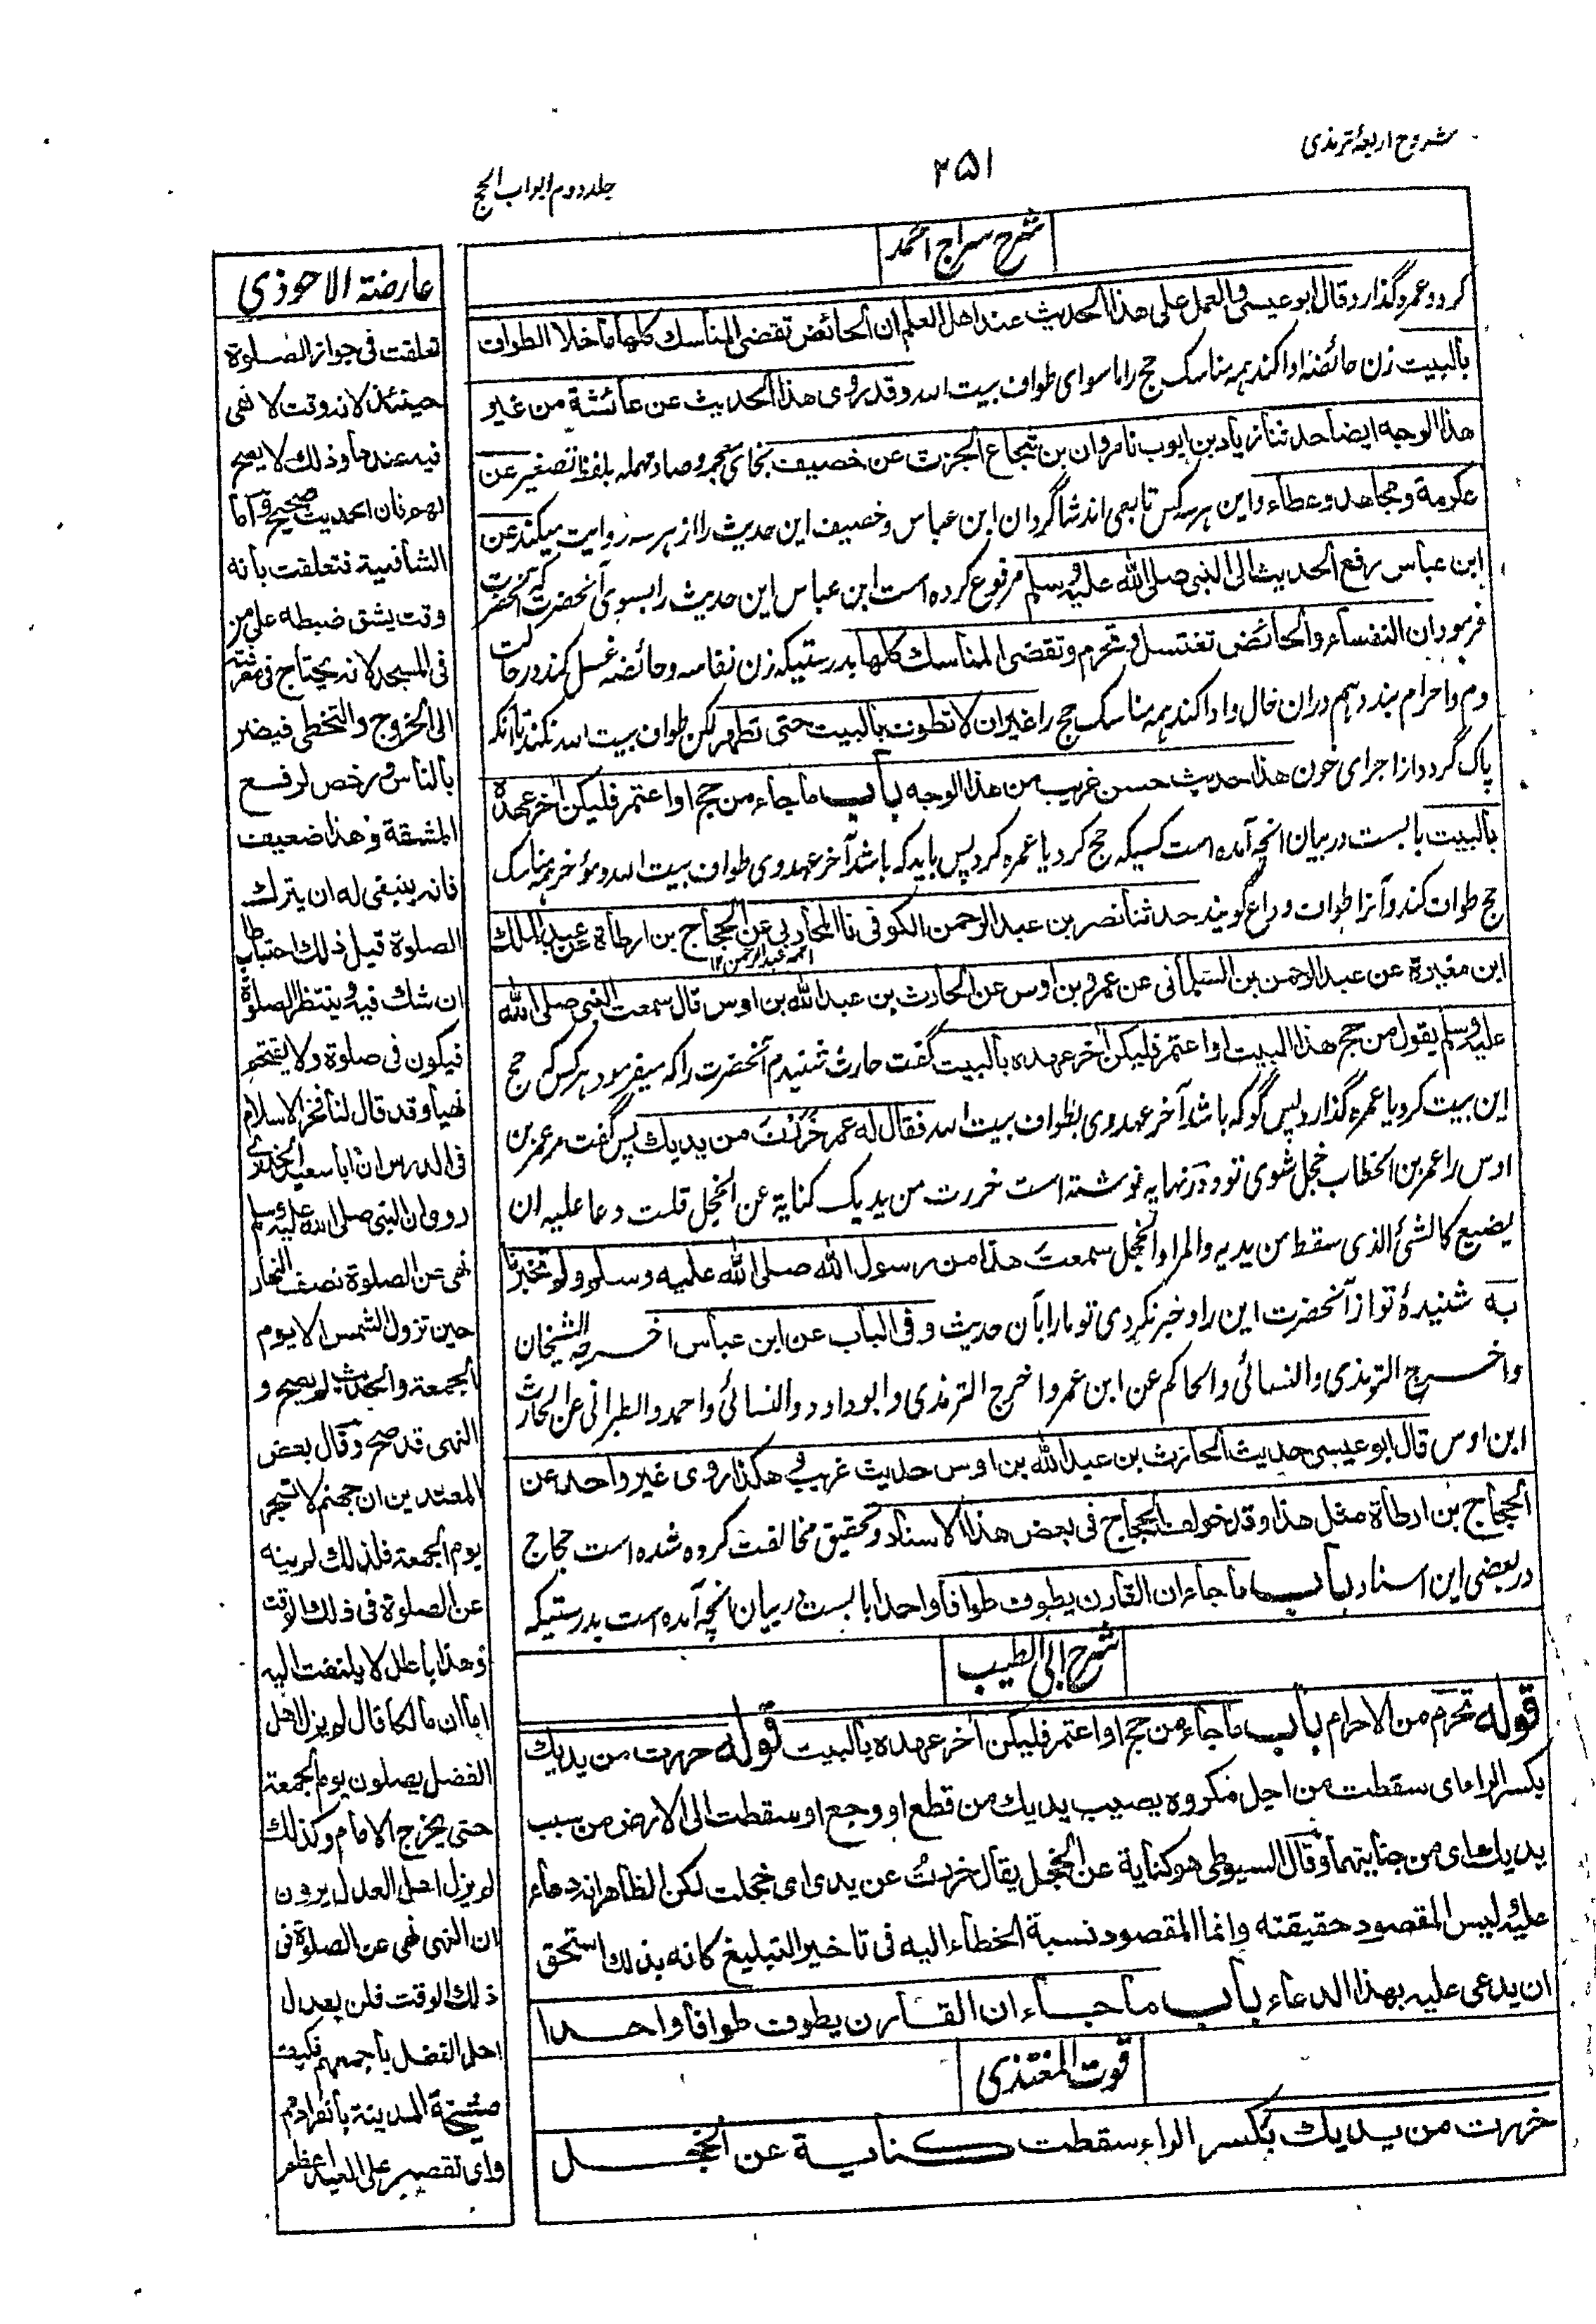 شروح اربعۂ ترمذی
۲۵۱
جلد دوم ابواب الحج
شرح سراج احمد
کرد و عمره گذارد و قال ابو عیسی و العمل علی هذا الحدیث عند اهل العلم ان الحائض تقضی المناسك کلها ما خلا الطواف
بالبیت زن حائضه ادا کند همه مناسک حج را ما سوای طواف بیت الله و قد روی هذا الحدیث عن عائشة من غیر
هذا الوجه ایضا حدثنا زیاد بن ایوب نا مروان بن شجاع الجزری عن خصیف بخای معجمه و صاد مهمله بلفظ تصغیر عن
عکرمة و مجاهد و عطاء و این هر سه کس تابعی اند شاگردان ابن عباس و خصیف این حدیث را از هر سه روایت میکند عن
ابن عباس رفع الحدیث الی النبی صلی الله علیه وسلم مرفوع کرده است ابن عباس این حدیث را بسوی آنحضرت که آنحضرت
فرمود ان النفساء و الحائض تغتسل و تحرم و تقضی المناسك کلها بدرستیکه زن نفاسه و حائضه غسل کند در حالت
دم و احرام بندد هم دران حال و ادا کند همه مناسک حج را غیر ان لا تطوف بالبیت حتی تطهر لکن طواف بیت الله نکند تا آنکه
پاک گردد از اجرای خون هذا حدیث حسن غریب من هذا الوجه باب ما جاء من حج او اعتمر فلیکن آخر عهده
بالبیت بابست در بیان آنچه آمده است کسیکه حج کرد یا عمره کرد پس باید که باشد آخر عهد وی طواف بیت الله و مؤخر همه مناسک
حج طواف کند و آنرا طواف وداع گویند حدثنا نصر بن عبد الرحمن الکوفی نا المحاربی عن الحجاج بن ارطاة عن عبد الملك
اسمه عبد الرحمن ۱۲
ابن مغیرة عن عبد الرحمن بن السلمانی عن عمرو بن اوس عن الحارث بن عبد الله بن اوس قال سمعت النبی صلی الله
علیه وسلم یقول من حج هذا البیت او اعتمر فلیکن آخر عهده بالبیت گفت حارث شنیدم آنحضرت را که میفرمود هر کس که حج
این بیت کرد یا عمره گذارد پس گو که باشد آخر عهد وی بطواف بیت الله فقال له عمر خررت من یدیك پس گفت مر عمر بن
اوس را عمر بن الخطاب خجل شوی تو و در نهایه نوشته است خررت من یدیک کنایة عن الخجل قلت دعا علیه ان
یضیع کالشئ الذی سقط من یدیه و المراد الخجل سمعت هذا من رسول الله صلی الله علیه وسلم و لم تخبرنا
به شنیدهٔ تو از آنحضرت این را و خبر نکردی تو ما را بآن حدیث و فی الباب عن ابن عباس اخرجه الشیخان
و اخرج الترمذی و النسائی و الحاکم عن ابن عمر و اخرج الترمذی و ابو داود و النسائی و احمد و الطبرانی عن الحارث
ابن اوس قال ابو عیسی حدیث الحارث بن عبد الله بن اوس حدیث غریب و هکذا روی غیر واحد عن
الحجاج بن ارطاة مثل هذا و قد خولف الحجاج فی بعض هذا الاسناد و تحقیق مخالفت کرده شده است حجاج
در بعضی این اسناد باب ما جاء ان القارن یطوف طوافا واحدا بابست در بیان آنچه آمده است بدرستیکه
شرح ابی الطیب
قوله تحرم من الاحرام باب ما جاء من حج او اعتمر فلیکن آخر عهده بالبیت قوله خررت من یدیك
بکسر الراء ای سقطت من اجل مکروه یصیب یدیك من قطع او وجع او سقطت الی الارض من سبب
یدیك ای من جنایتهما و قال السیوطی هو کنایة عن الخجل یقال خررت عن یدی ای خجلت لکن الظاهر انه دعاء
علیه لیس المقصود حقیقته و انما المقصود نسبة الخطاء الیه فی تاخیر التبلیغ کانه بذلك استحق
ان یدعی علیه بهذا الدعاء باب ما جاء ان القارن یطوف طوافا واحدا
قوت المغتذی
خررت من یدیك بکسر الراء سقطت کنایة عن الخجل
عارضة الاحوذی
تعلقت فی جواز الصلوة
حینئذ لانه وقت لا نهی
فیه عندها و ذلك لا یصح
لهم فان الحدیث صحیح و اما
الشافعیة فتعلقت بانه
وقت یشق ضبطه علی من
فی المسجد لانه یحتاج فی معرفته
الی الخروج و التخطی فیضر
بالناس و رخص لرفع
المشقة و هذا ضعیف
فانه ینبغی له ان یترك
الصلوة قبل ذلك احتیاطا
ان شك فیه و ینتظر الصلوة
فیکون فی صلوة و لا یقتحم
نهیا و قد قال لنا فخر الاسلام
فی الدرس ان ابا سعید الخدری
روی ان النبی صلی الله علیه وسلم
نهی عن الصلوة نصف النهار
حین تزول الشمس الا یوم
الجمعة و الحدیث لم یصح و
النهی قد صح و قال بعض
المعتدین ان جهنم لا تسجر
یوم الجمعة فلذلك لم ینه
عن الصلوة فی ذلك الوقت
و هذا باطل لا یلتفت الیه
اما ان مالکا قال لم یزل اهل
الفضل یصلون یوم الجمعة
حتی یخرج الامام و کذلك
لم یزل اهل العدل یرون
ان النهی نهی عن الصلوة فی
ذلك الوقت فلن یعدل
اهل الفضل باجمعهم فکیف
مشیخة المدینة بانفرادهم
و ای تقصیر علی العبد اعظم